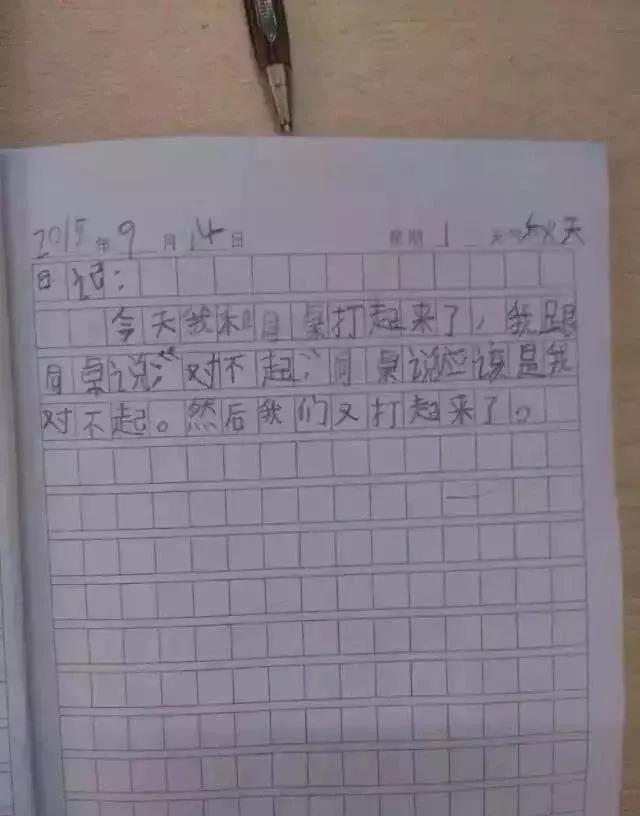 2015年9月14日 星期1 天气
日记：
今天我和同桌打起来了，我跟
同桌说："对不起"，同桌说应该是我
对不起。然后我们又打起来了。